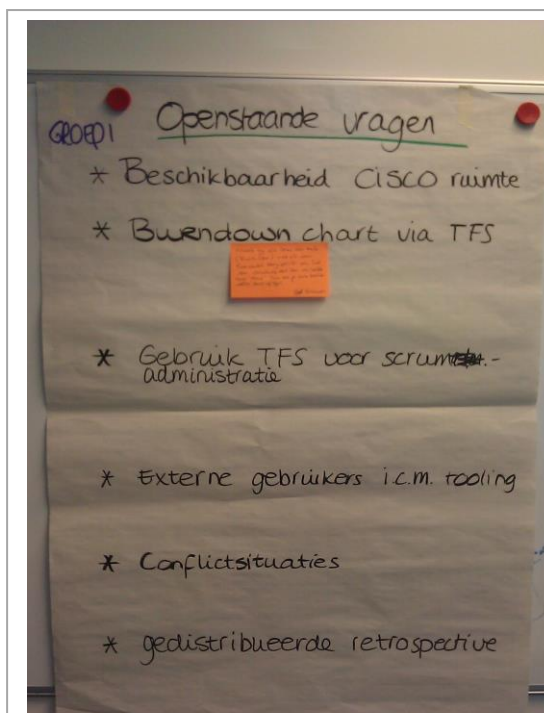 GROEP1
Openstaande vragen
* Beschikbaarheid CISCO ruimte
* Burndown chart via TFS
* Gebruik TFS voor scrum-
administratie
* Externe gebruikers i.c.m. tooling
* Conflictsituaties
* gedistribueerde retrospective